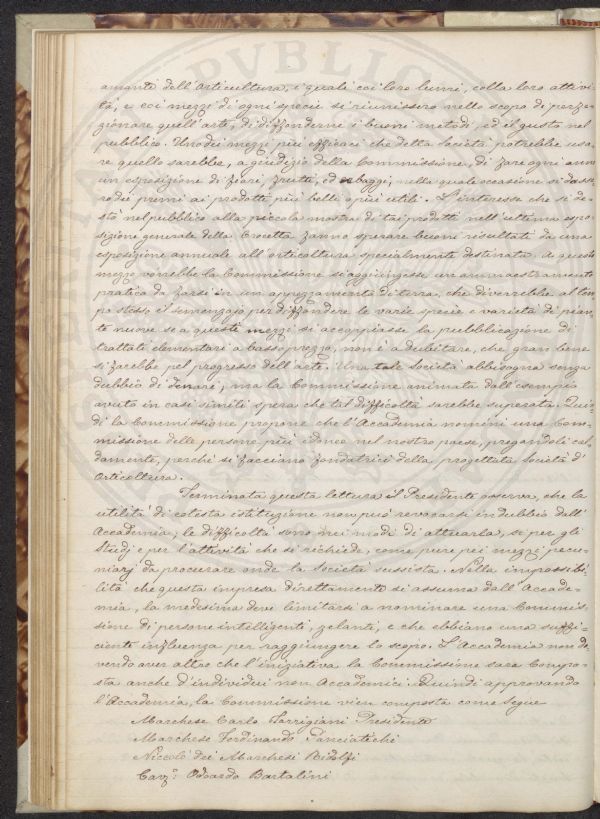 amanti dell'Orticultura, i quali coi loro lumi, colla loro attivi-
tà, e coi mezzi di ogni specie si riunissero nello scopo di perfe-
zionare quell'arte, di diffonderne i buoni metodi, ed il gusto nel
pubblico. Uno dei mezzi più efficaci che detta Società potrebbe usa-
re quello sarebbe, a giudizio della Commissione, di fare ogni anno
un esposizione di fiori, frutta, ed erbaggi, nella quale occasione si dasse-
ro dei premi ai prodotti più belli o più utili. L'interesse che si de-
stò nel pubblico alla piccola mostra di tai prodotti nell'ultima espo-
sizione generale della Crocetta fanno sperare buoni risultati da una
esposizione annuale all'orticoltura specialmente destinata. A questo
mezzo vorrebbe la Commissione si aggiungesse un ammaestramento
pratico da farsi in un appezzamento di terra, che diverrebbe al tem-
po stesso il semenzajo per diffondere le varie specie e varietà di pian-
te nuove se a questi mezzi si accoppiasse la pubblicazione di
trattati elementari a basso prezzo, non è a dubitare, che gran bene
si farebbe pel progresso dell'arte. Una tale Società abbisogna senza
dubbio di denari, ma la Commissione animata dall'esempio
avuto in casi simili spera che tal difficoltà sarebbe superata. Quin-
di la Commissione propone che l'Accademia nomini una Com-
missione delle persone più idonee nel nostro paese, pregandoli cal-
damente, perchè si facciano fondatrici della progettata Società d'
Orticoltura.
Terminata questa lettura il Presidente osserva, che la
utilità di cotesta istituzione non può revocarsi in dubbio dall'
Accademia; le difficoltà sono nei modi di attuarla, sì per gli
Studj e per l'attività che si richiede, come pure pei mezzi pecu-
niarj da procurare onde la Società sussista. Nella impossibi-
lità che questa impresa direttamente si assuma dall'Accade-
mia, la medesima deve limitarsi a nominare una Commis-
sione di persone intelligenti, zelanti, e che abbiano una suffi-
ciente influenza per raggiungere lo scopo. L'Accademia non do-
vendo aver altro che l'iniziativa la Commissione sarà Compo-
sta anche d'individui non Accademici: Quindi approvando
l'Accademia, la Commissione vien composta come segue
Marchese Carlo Torrigiani Presidente
Marchese Ferdinando Panciatichi
Niccolò dei Marchesi Ridolfi
Cav.e Odoardo Bartalini